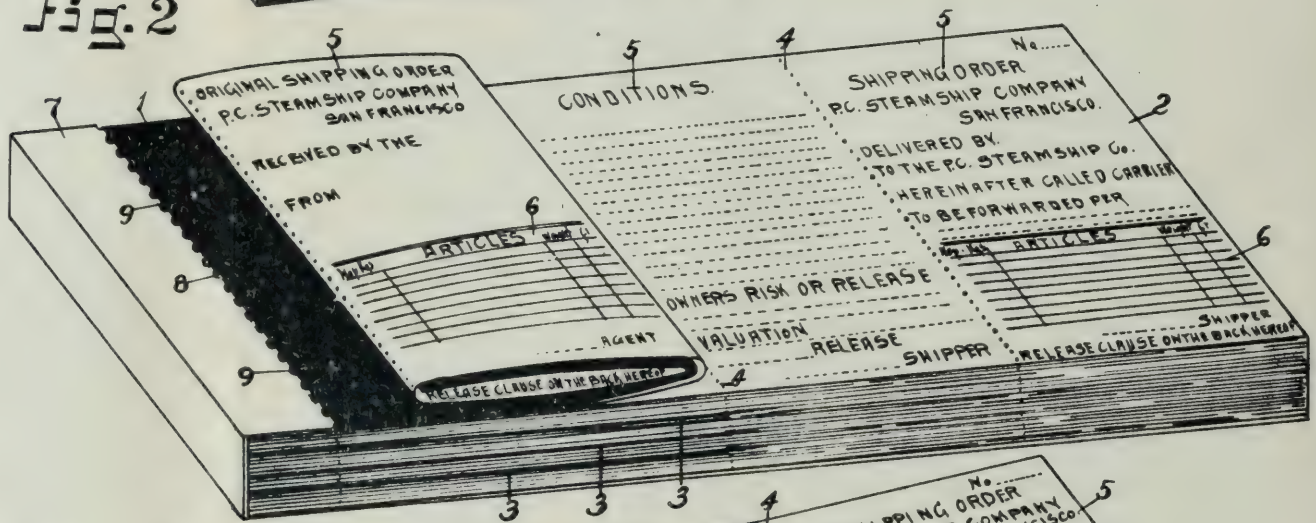 Fig. 2
5
5
4
5
7
1
ORIGINAL SHIPPING ORDER
P.C. STEAMSHIP COMPANY
SAN FRANCISCO
RECEIVED BY THE
FROM
6
ARTICLES
Weight
AGENT
RELEASE CLAUSE ON THE BACK HEREOF
9
8
9
CONDITIONS.
OWNERS RISK OR RELEASE
VALUATION
RELEASE
SHIPPER
4
No.....
SHIPPING ORDER
P.C. STEAMSHIP COMPANY
SAN FRANCISCO.
2
DELIVERED BY.
TO THE P.C. STEAMSHIP Co.
HEREINAFTER CALLED CARRIER
TO BE FORWARDED PER
ARTICLES
Weight
6
SHIPPER
RELEASE CLAUSE ON THE BACK HEREOF
3
3
3
4
No.....
PPING ORDER
COMPANY
CISCO.
5